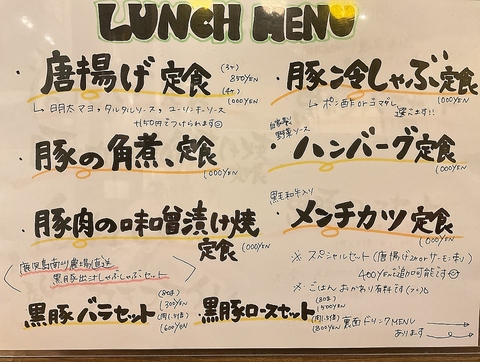 LUNCH MENU
・唐揚げ定食
(3ヶ) 850YEN
(4ヶ) 1000YEN
↳ 明太マヨ、タルタルソース、ユーリンチーソース
+150円でつけられます
・豚の角煮定食
1000YEN
・豚肉の味噌漬け焼
定食 1000YEN
鹿児島南州農場直送
黒豚出汁しゃぶしゃぶセット
黒豚バラセット
(80g) 1300YEN
(肉1.5倍) 1600YEN
・豚冷しゃぶ定食
1000YEN
↳ ポン酢 or ゴマダレ
選べます!!
自家製
野菜ソース
・ハンバーグ定食
1000YEN
黒毛和牛入り
・メンチカツ定食
1000YEN
※ スペシャルセット(唐揚げ2ヶorサーモン刺し)
400YENで追加可能です
※ ごはんおかわり有料です
黒豚ロースセット
(80g) 1500YEN
(肉1.5倍) 1800YEN
裏面ドリンクMENU
あります